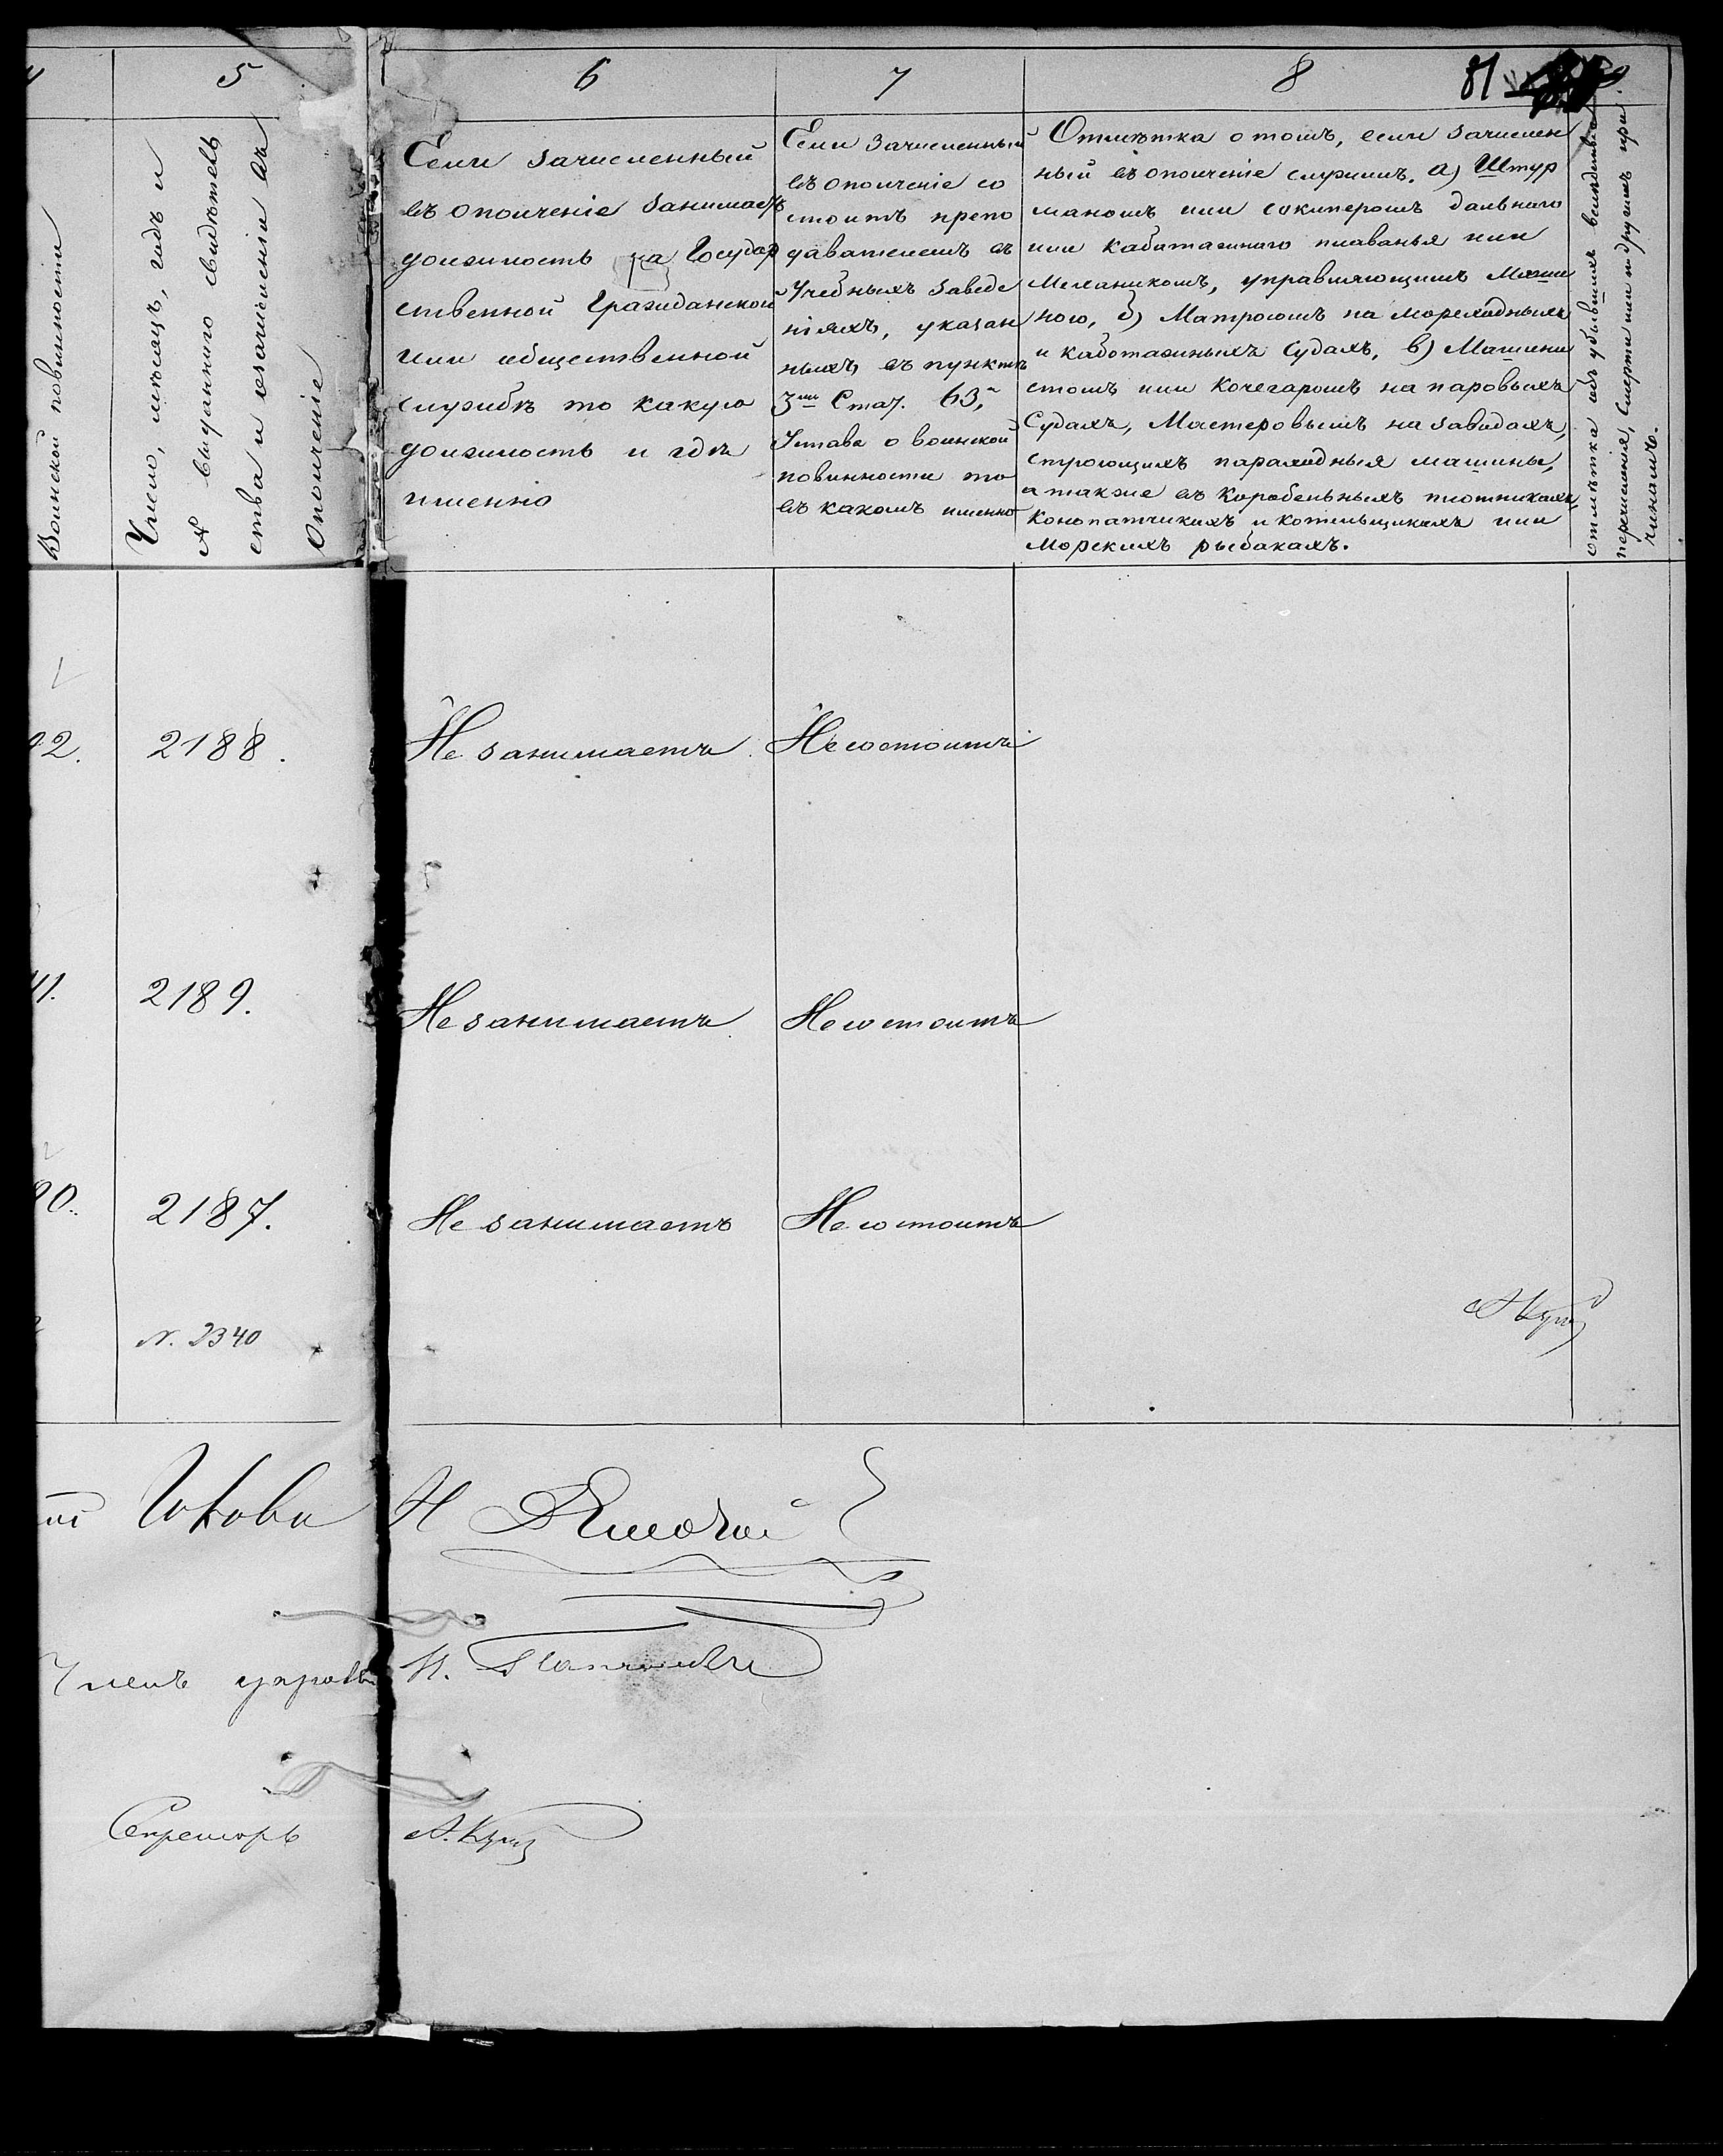 4
5
6
7
8
81
Воинской повинности
Число, мѣсяцъ, годъ и
№ выданнаго свидѣтель
ства и зачисленіи въ
Ополченіе
Если зачисленный
въ ополченіе занимаетъ
должность на Государ
ственной Гражданской
или общественной
службѣ то какую
должность и гдѣ
именно
Если зачисленный
въ ополченіе со
стоитъ препо
давателемъ въ
Учебныхъ заведе
ніяхъ, указан
ныхъ въ пунктѣ
3мъ Стат. 63й
Устава о воинской
повинности то
въ какомъ именно
Отмѣтка о томъ, если зачислен
ный въ ополченіе служитъ. а) Штур
маномъ или шкиперомъ дальнаго
или кабатажнаго плаванья или
Механикомъ, управляющимъ Маши
ною, б) Матросомъ на мореходныхъ
и каботажныхъ судахъ, в) Машини
стомъ или Кочегаромъ на паровыхъ
Судахъ, Мастеровымъ на заводахъ,
строющихъ параходныя машины,
а также въ Корабельныхъ плотникахъ,
Конопатчикахъ и котельщикахъ или
Морскихъ рыбакахъ.
Отмѣтка объ убывшихъ вслѣдствіе
перечисленія, Смерти или по другимъ при
чинамъ.
2.
2188.
Не занимаетъ.
Не состоитъ
41.
2189.
Не занимаетъ.
Не состоитъ
90.
2187.
Не занимаетъ
Не состоитъ
N. 2340
Членъ управы
Н.
Секретарь
А.